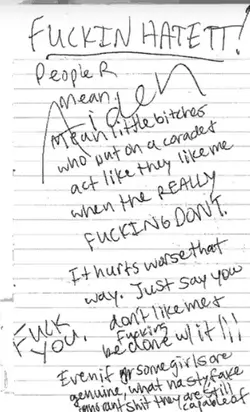 FUCKIN HATE IT!
People R
mean,
Aiden
Mean little bitches
who put on a corades
act like they like me
when the REALLY
FUCKING DON'T.
It hurts worse that
way. Just say you
don't like me &
fucking
be done w/it!!!
FUCK
YOU.
Even if gr some girls are
genuine, what nasty, fake
ignorant shit they are still